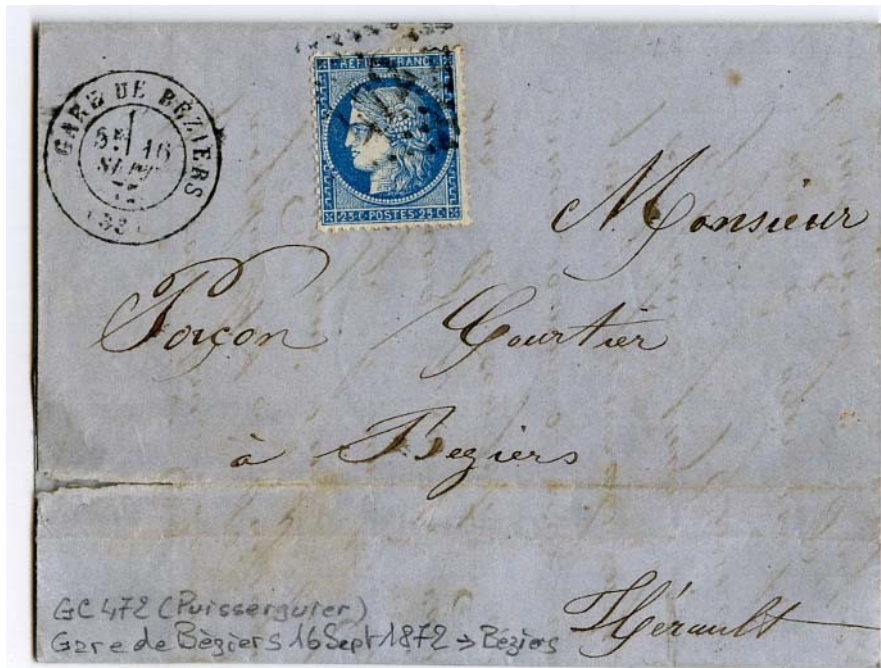 GARE DE BÉZIERS
5E 16
SEPT
72
(33)
REPUB. FRANC.
25 C POSTES 25 C
Monsieur
Poiçon Courtier
à Beziers
Hérault
GC 472 (Puisserguier)
Gare de Bèziers 16 Sept 1872 → Béziers